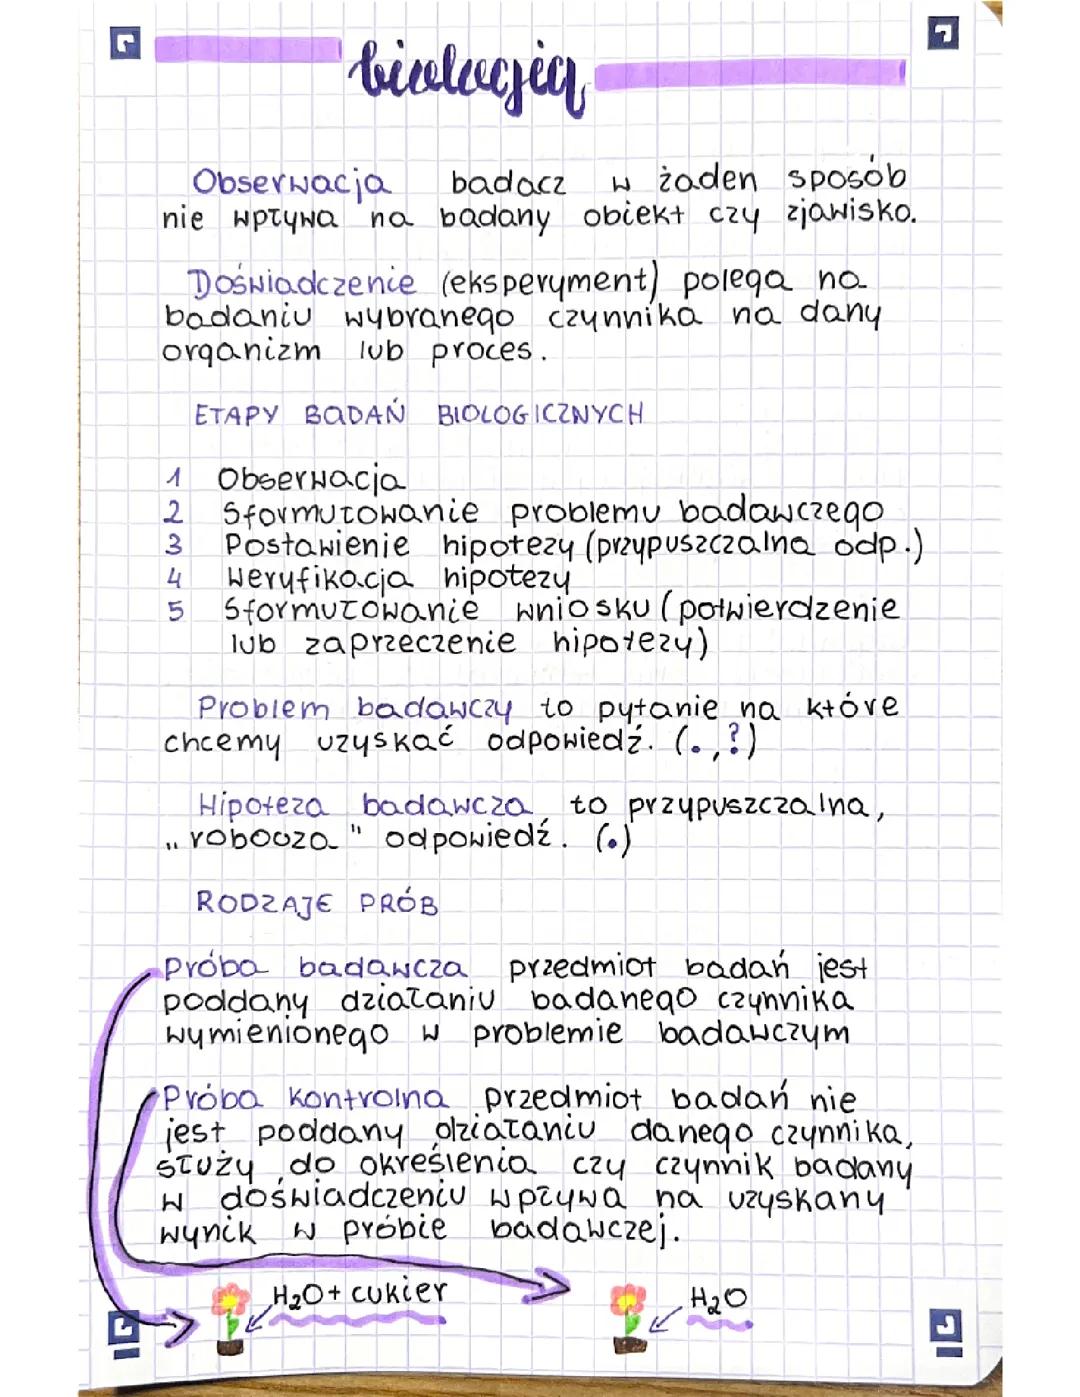 biologia
Obserwacja badacz w żaden sposób
nie wpływa na badany obiekt czy zjawisko.
Doświadczenie (eksperyment) polega na
badaniu wybranego czynnika na dany
organizm lub proces.
ETAPY BADAŃ BIOLOGICZNYCH
1 Obserwacja
2 Sformułowanie problemu badawczego
3 Postawienie hipotezy (przypuszczalna odp.)
4 Weryfikacja hipotezy
5 Sformułowanie wniosku (potwierdzenie
lub zaprzeczenie hipotezy)
Problem badawczy to pytanie na które
chcemy uzyskać odpowiedź. (.,?)
Hipoteza badawcza to przypuszczalna,
„robocza" odpowiedź. (.)
RODZAJE PRÓB
Próba badawcza przedmiot badań jest
poddany działaniu badanego czynnika
wymienionego w problemie badawczym
Próba kontrolna przedmiot badań nie
jest poddany działaniu danego czynnika,
służy do określenia czy czynnik badany
w doświadczeniu wpływa na uzyskany
wynik w próbie badawczej.
H₂O + cukier
H₂O